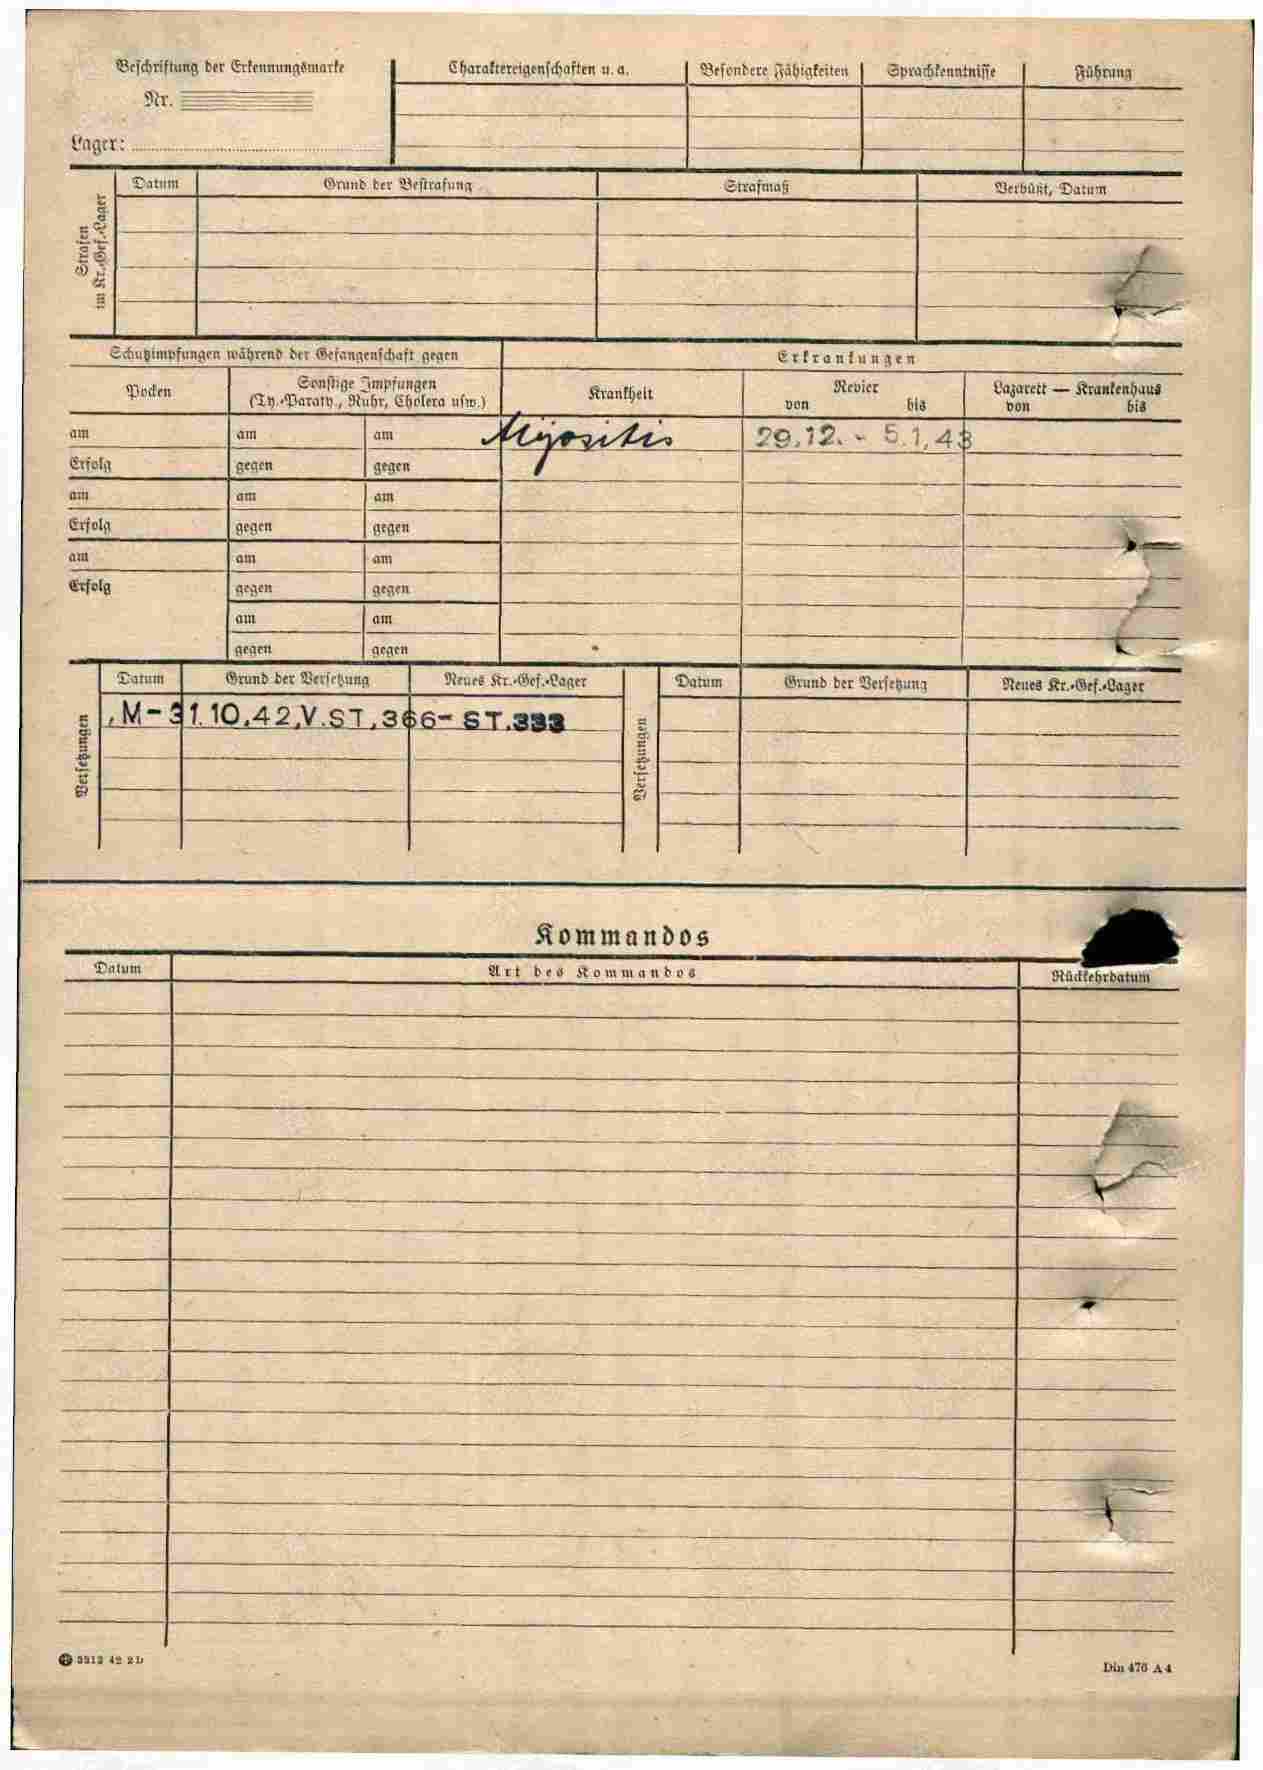 Beschriftung der Erkennungsmarke
Nr.
Lager:
Charaktereigenschaften u. a.
Besondere Fähigkeiten
Sprachkenntnisse
Führung
Strafen im Kr.-Gef.-Lager
Datum
Grund der Bestrafung
Strafmaß
Verbüßt, Datum
Schutzimpfungen während der Gefangenschaft gegen
Erkrankungen
Pocken
Sonstige Impfungen
(Ty.-Paraty., Ruhr, Cholera usw.)
Krankheit
Revier
von bis
Lazarett — Krankenhaus
von bis
am am am Myositis 29.12. - 5.1.43
Erfolg gegen gegen
am am am
Erfolg gegen gegen
am am am
Erfolg gegen gegen
am am
gegen gegen
Versetzungen
Datum Grund der Versetzung Neues Kr.-Gef.-Lager
,M-31.10.42,V.ST,366-ST.333
Versetzungen
Datum Grund der Versetzung Neues Kr.-Gef.-Lager
Kommandos
Datum Art des Kommandos Rückkehrdatum
3313 42 2D
Din 476 A4